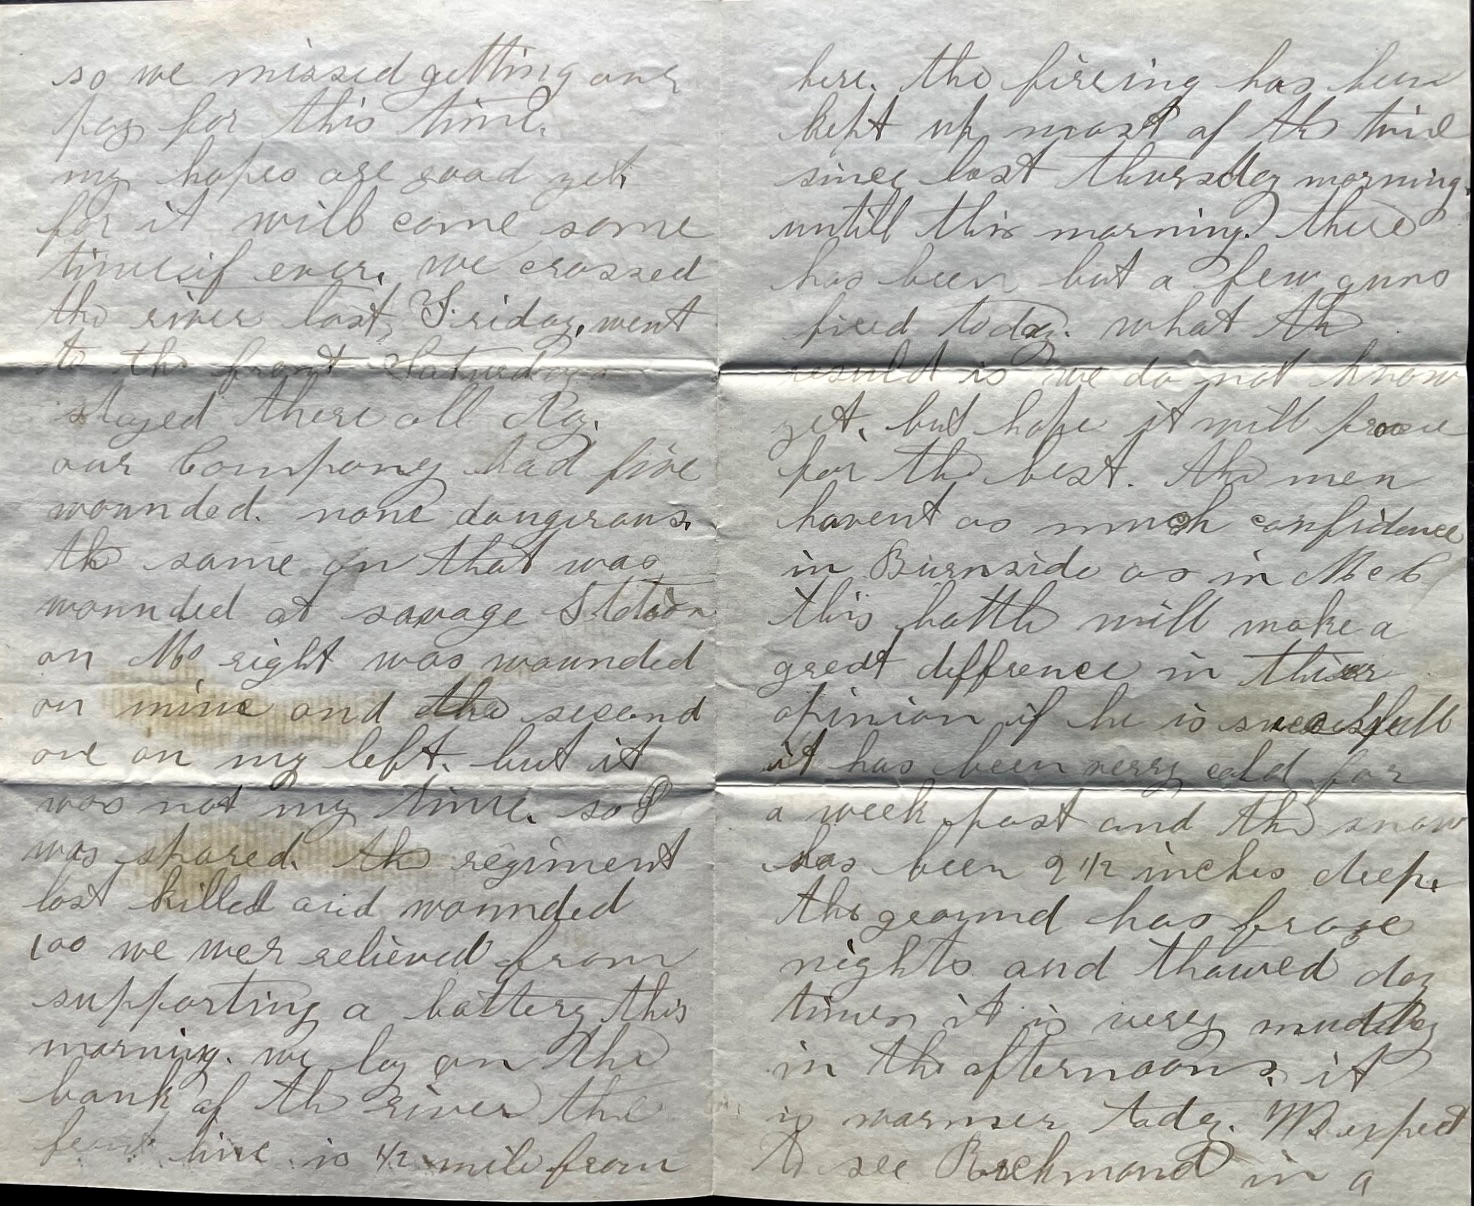 so we missed getting our
pay for this time.
my hopes are good yet,
for it will come some
time if ever. we crossed
the river last Friday, went
to the front Saturday
stayed there all day.
our Company had five
wounded. none dangerous,
the same on that was
wounded at savage Station
on Mo right was wounded
on mine and the second
one on my left. but it
was not my time. so I
was spared. the regiment
lost killed and wounded
100 we wer relieved from
supporting a battery this
morning. we lay on the
bank of the river the
line is 1/2 mile from
here. the fireing has been
kept up most of the time
since last thursday morning.
untill this morning. there
has been but a few guns
fired today. what the
result is we do not know
yet. but hope it will prove
for the best. the men
havent as much confidence
in Burnside as in McC
this battle will make a
great diffrence in thier
opinion if he is sucessfull
it has been verry cold for
a week past and the snow
has been 2 1/2 inches deep.
the ground has froze
nights and thawed day
times it is verry muddy
in the afternoons. it
is warmer today. We expect
to see Richmond in a